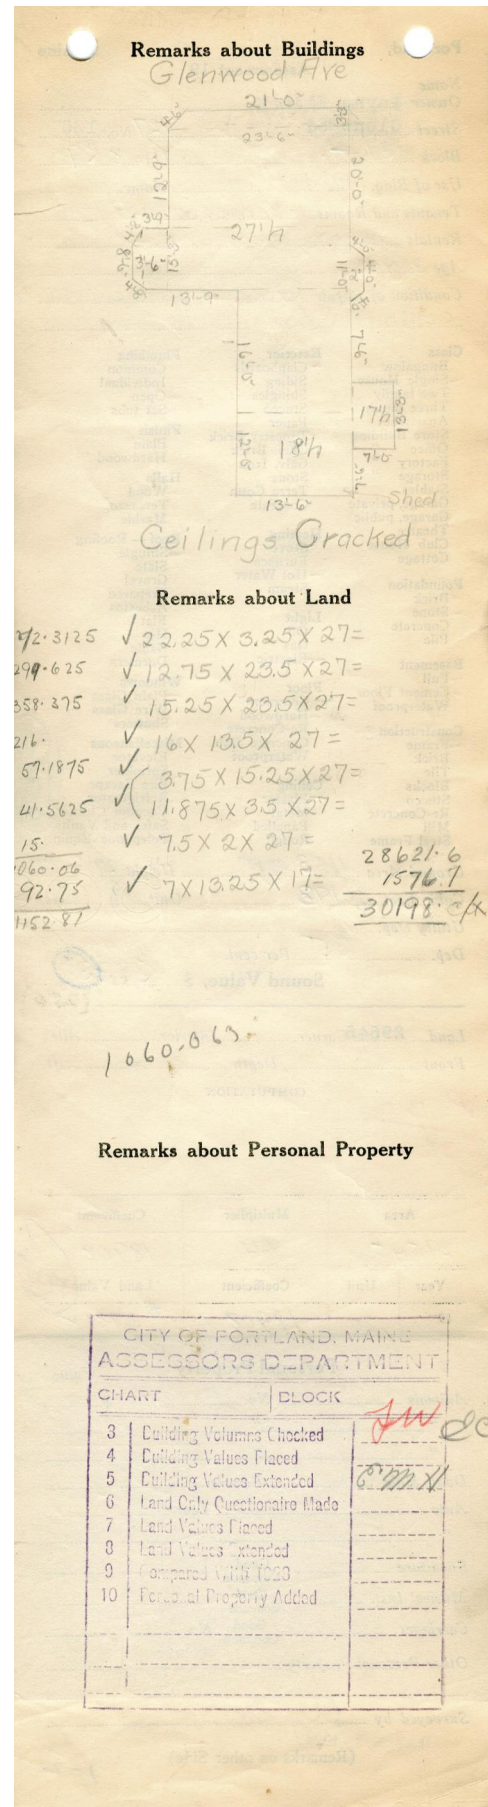 Remarks about Buildings
Glenwood Ave
21'-0"
23'-6"
12'-9"
27'h
13'-9"
17'h
18'h
7'-0"
13'-6"
Shed
Ceilings Cracked
Remarks about Land
72.3125 ✓ 22.25 X 3.25 X 27=
299.625 ✓ 12.75 X 23.5 X 27=
358.375 ✓ 15.25 X 23.5 X 27=
216. ✓ 16 X 13.5 X 27=
57.1875 ✓ 3.75 X 15.25 X 27=
41.5625 ✓ 11.875 X 3.5 X 27=
15. ✓ 7.5 X 2 X 27=
1060.06
92.75 ✓ 7 X 13.25 X 17=
1152.81
28621.6
1576.7
30198.
1060.063
Remarks about Personal Property
CITY OF PORTLAND, MAINE
ASSESSORS DEPARTMENT
CHART BLOCK
3 Building Volumns Checked
4 Building Values Placed
5 Building Values Extended
6 Land Only Questionaire Made
7 Land Values Placed
8 Land Values Extended
9 Compared With 1923
10 Personal Property Added
(Remarks on other Side)